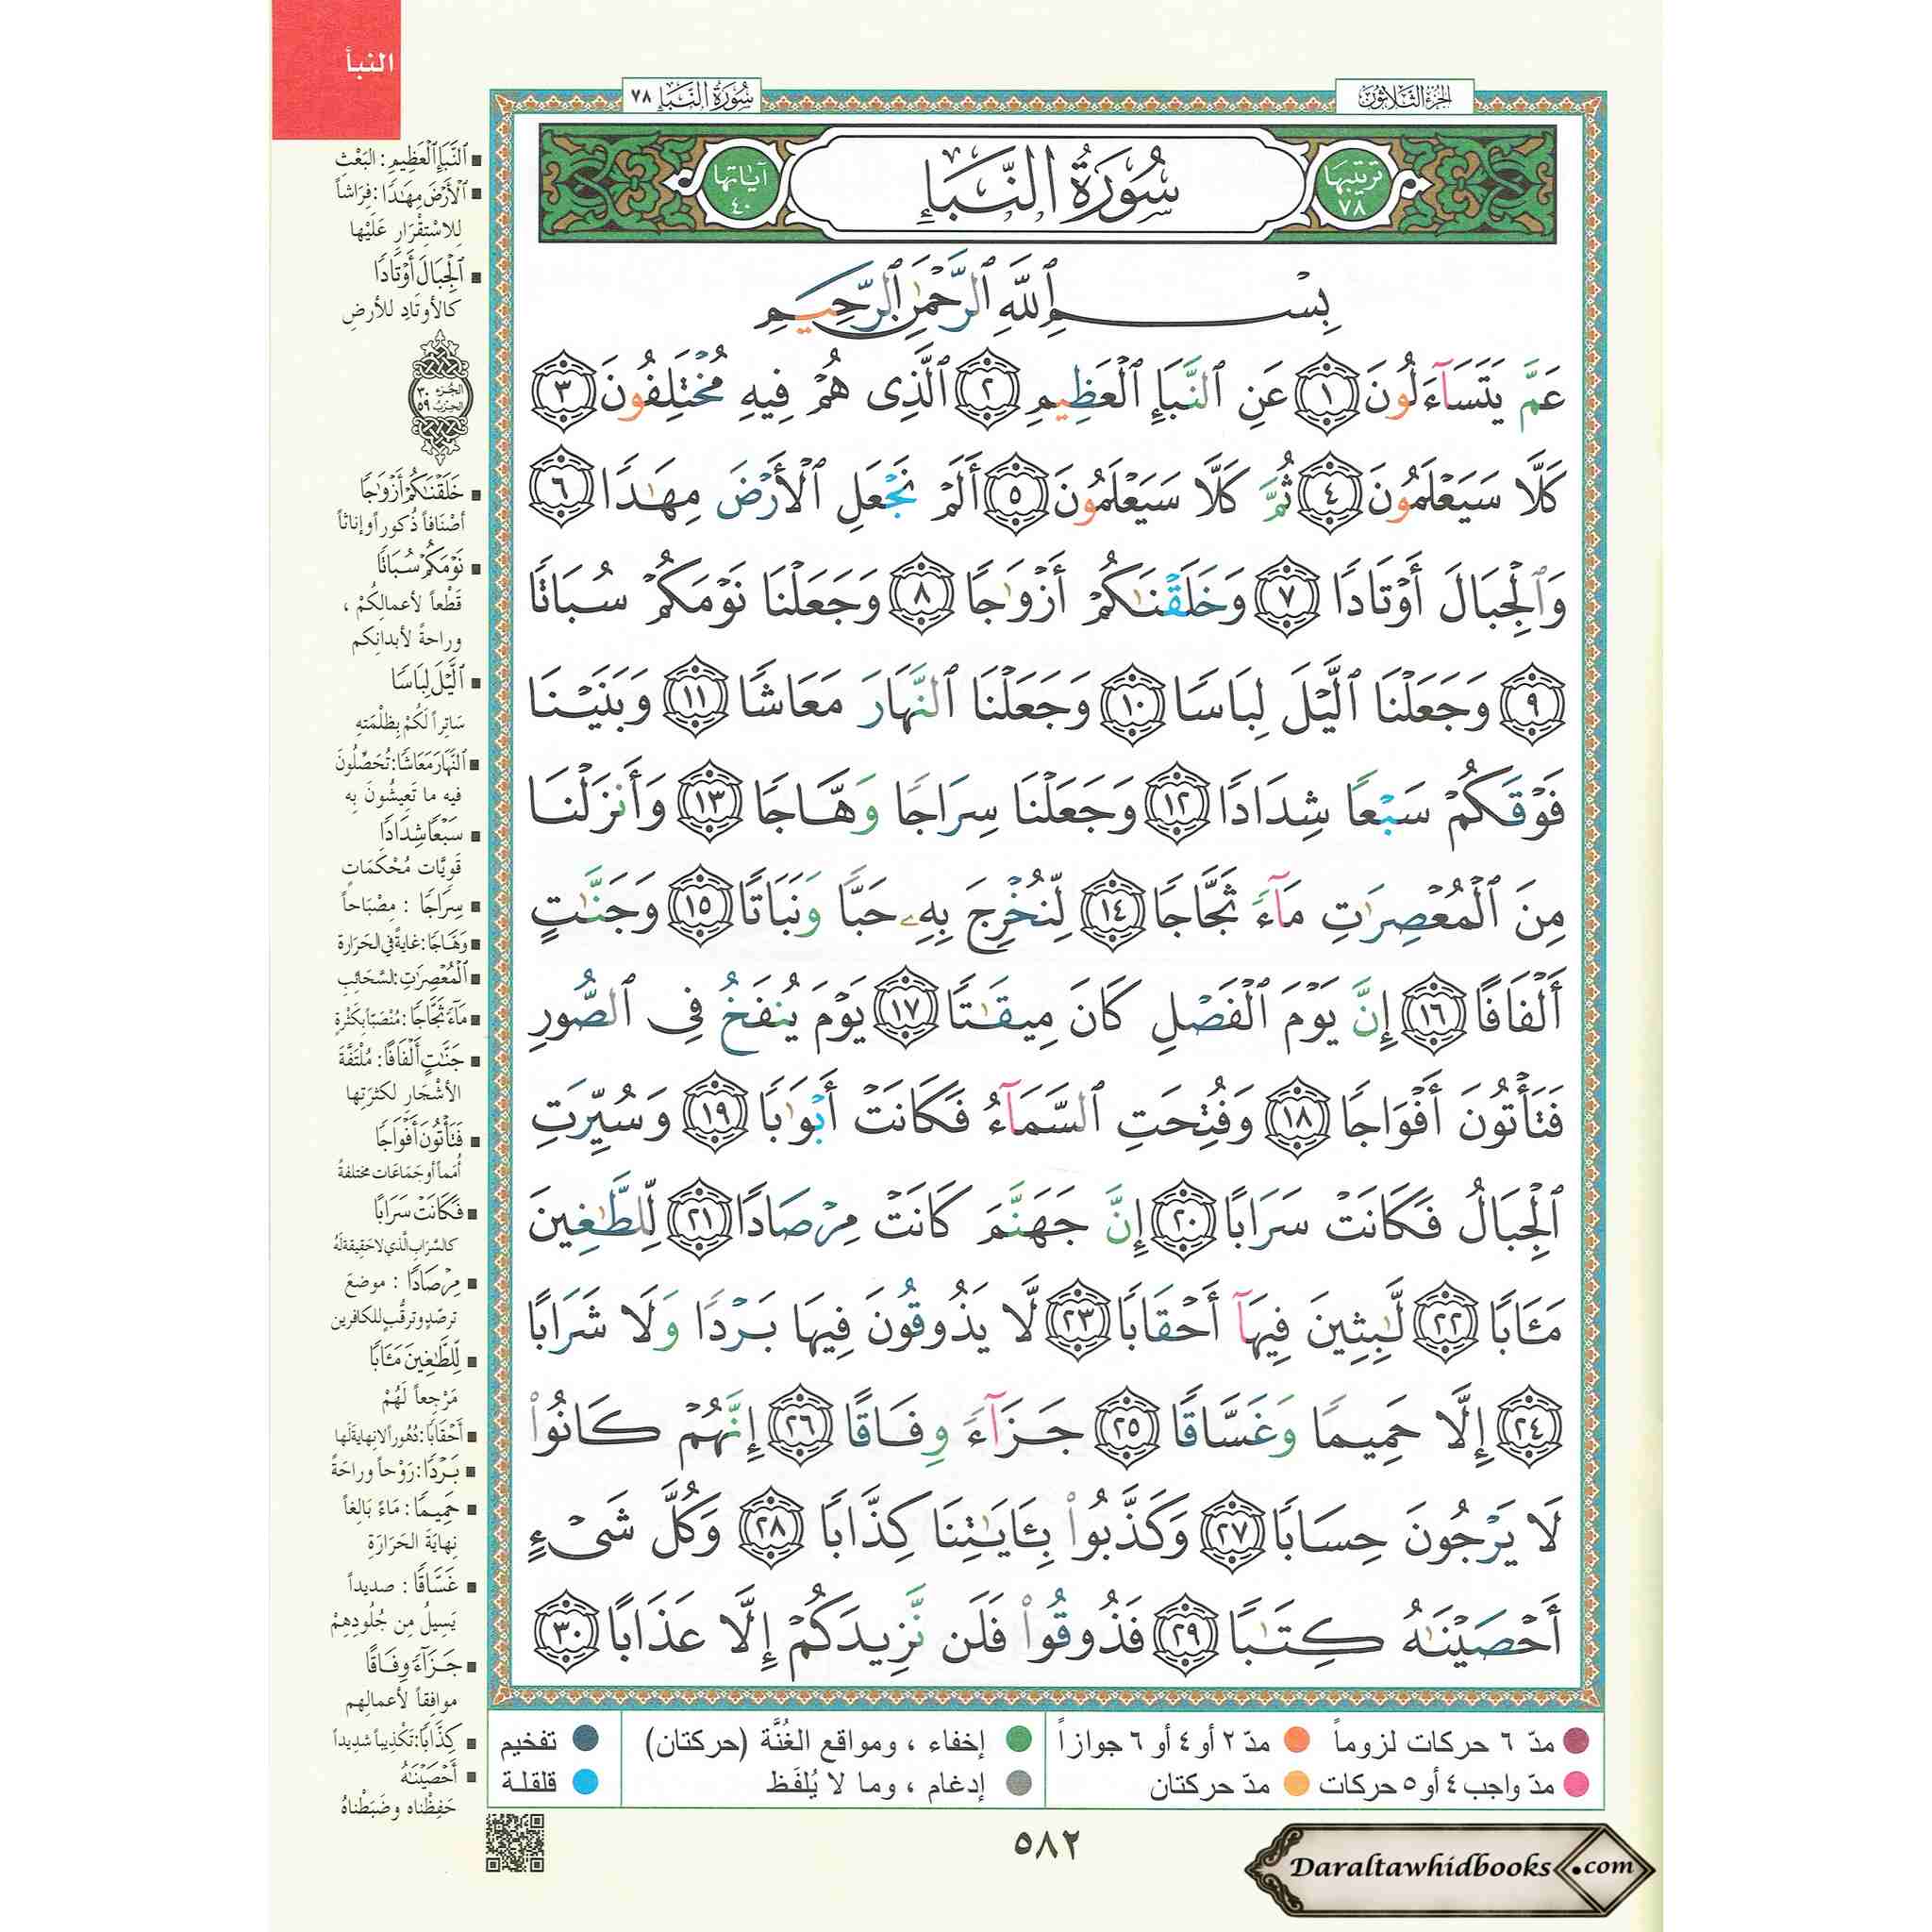 النبأ
الجزء الثلاثون
سورة النبإ ٧٨
ترتيبها ٧٨
سُورَةُ النَّبَإِ
آياتها ٤٠
بِسْمِ ٱللَّهِ ٱلرَّحْمَٰنِ ٱلرَّحِيمِ
عَمَّ يَتَسَآءَلُونَ ١ عَنِ ٱلنَّبَإِ ٱلْعَظِيمِ ٢ ٱلَّذِى هُمْ فِيهِ مُخْتَلِفُونَ ٣
كَلَّا سَيَعْلَمُونَ ٤ ثُمَّ كَلَّا سَيَعْلَمُونَ ٥ أَلَمْ نَجْعَلِ ٱلْأَرْضَ مِهَٰدًا ٦
وَٱلْجِبَالَ أَوْتَادًا ٧ وَخَلَقْنَٰكُمْ أَزْوَٰجًا ٨ وَجَعَلْنَا نَوْمَكُمْ سُبَاتًا
٩ وَجَعَلْنَا ٱلَّيْلَ لِبَاسًا ١٠ وَجَعَلْنَا ٱلنَّهَارَ مَعَاشًا ١١ وَبَنَيْنَا
فَوْقَكُمْ سَبْعًا شِدَادًا ١٢ وَجَعَلْنَا سِرَاجًا وَهَّاجًا ١٣ وَأَنزَلْنَا
مِنَ ٱلْمُعْصِرَٰتِ مَآءً ثَجَّاجًا ١٤ لِّنُخْرِجَ بِهِۦ حَبًّا وَنَبَاتًا ١٥ وَجَنَّٰتٍ
أَلْفَافًا ١٦ إِنَّ يَوْمَ ٱلْفَصْلِ كَانَ مِيقَٰتًا ١٧ يَوْمَ يُنفَخُ فِى ٱلصُّورِ
فَتَأْتُونَ أَفْوَاجًا ١٨ وَفُتِحَتِ ٱلسَّمَآءُ فَكَانَتْ أَبْوَٰبًا ١٩ وَسُيِّرَتِ
ٱلْجِبَالُ فَكَانَتْ سَرَابًا ٢٠ إِنَّ جَهَنَّمَ كَانَتْ مِرْصَادًا ٢١ لِّلطَّٰغِينَ
مَـَٔابًا ٢٢ لَّٰبِثِينَ فِيهَآ أَحْقَابًا ٢٣ لَّا يَذُوقُونَ فِيهَا بَرْدًا وَلَا شَرَابًا
٢٤ إِلَّا حَمِيمًا وَغَسَّاقًا ٢٥ جَزَآءً وِفَاقًا ٢٦ إِنَّهُمْ كَانُوا۟
لَا يَرْجُونَ حِسَابًا ٢٧ وَكَذَّبُوا۟ بِـَٔايَٰتِنَا كِذَّابًا ٢٨ وَكُلَّ شَىْءٍ
أَحْصَيْنَٰهُ كِتَٰبًا ٢٩ فَذُوقُوا۟ فَلَن نَّزِيدَكُمْ إِلَّا عَذَابًا ٣٠
ٱلنَّبَإِ ٱلْعَظِيمِ: البَعْثِ
ٱلْأَرْضَ مِهَٰدًا: فِرَاشاً
لِلاسْتِقْرَارِ عَلَيْها
ٱلْجِبَالَ أَوْتَادًا
كالأوتَادِ للأرضِ
الجزء ٣٠
الحزب ٥٩
خَلَقْنَٰكُمْ أَزْوَٰجًا
أصْنَافاً ذُكوراً وإناثاً
نَوْمَكُمْ سُبَاتًا
قَطْعاً لأعمالِكُمْ،
وراحةً لأبدانِكم
ٱلَّيْلَ لِبَاسًا
سَاتِراً لَكُمْ بِظلْمَتِهِ
ٱلنَّهَارَ مَعَاشًا: تُحَصِّلُونَ
فيه ما تَعِيشُونَ بِه
سَبْعًا شِدَادًا
قَوِيَّات مُحْكَمَاتٍ
سِرَاجًا : مِصْبَاحاً
وَهَّاجًا: غايةً في الحَرَارة
ٱلْمُعْصِرَٰتِ: السَّحَائِبِ
مَآءً ثَجَّاجًا: مُنْصَبّاً بِكَثْرةٍ
جَنَّٰتٍ أَلْفَافًا: مُلْتَفَّةَ
الأشْجَارِ لكثرَتِها
فَتَأْتُونَ أَفْوَاجًا
أُمَماً أو جَمَاعَات مختلفةً
فَكَانَتْ سَرَابًا
كالسَّرَابِ الَّذي لا حَقِيقَة لَهُ
مِرْصَادًا : موضعَ
ترصّدٍ وترقُّبٍ للكافرين
لِّلطَّٰغِينَ مَـَٔابًا
مَرْجِعاً لَهُمْ
أَحْقَابًا: دُهُوراً لا نِهايةَ لَها
بَرْدًا: رَوْحاً وراحَةً
حَمِيمًا: مَاءً بَالِغاً
نِهايَةَ الحَرَارَةِ
غَسَّاقًا : صديداً
يَسِيلُ مِن جُلُودِهِمْ
جَزَآءً وِفَاقًا
موافِقاً لأعمالِهِم
كِذَّابًا: تَكْذِيباً شَدِيداً
أَحْصَيْنَٰهُ
حَفِظْناه وضَبَطْناهُ
مدّ ٦ حركات لزوماً
مدّ ٢ أو ٤ أو ٦ جوازاً
إخفاء ، ومواقع الغُنَّة (حركتان)
تفخيم
مدّ واجب ٤ أو ٥ حركات
مدّ حركتان
إدغام ، وما لا يُلفَظ
قلقلة
٥٨٢
Daraltawhidbooks.com